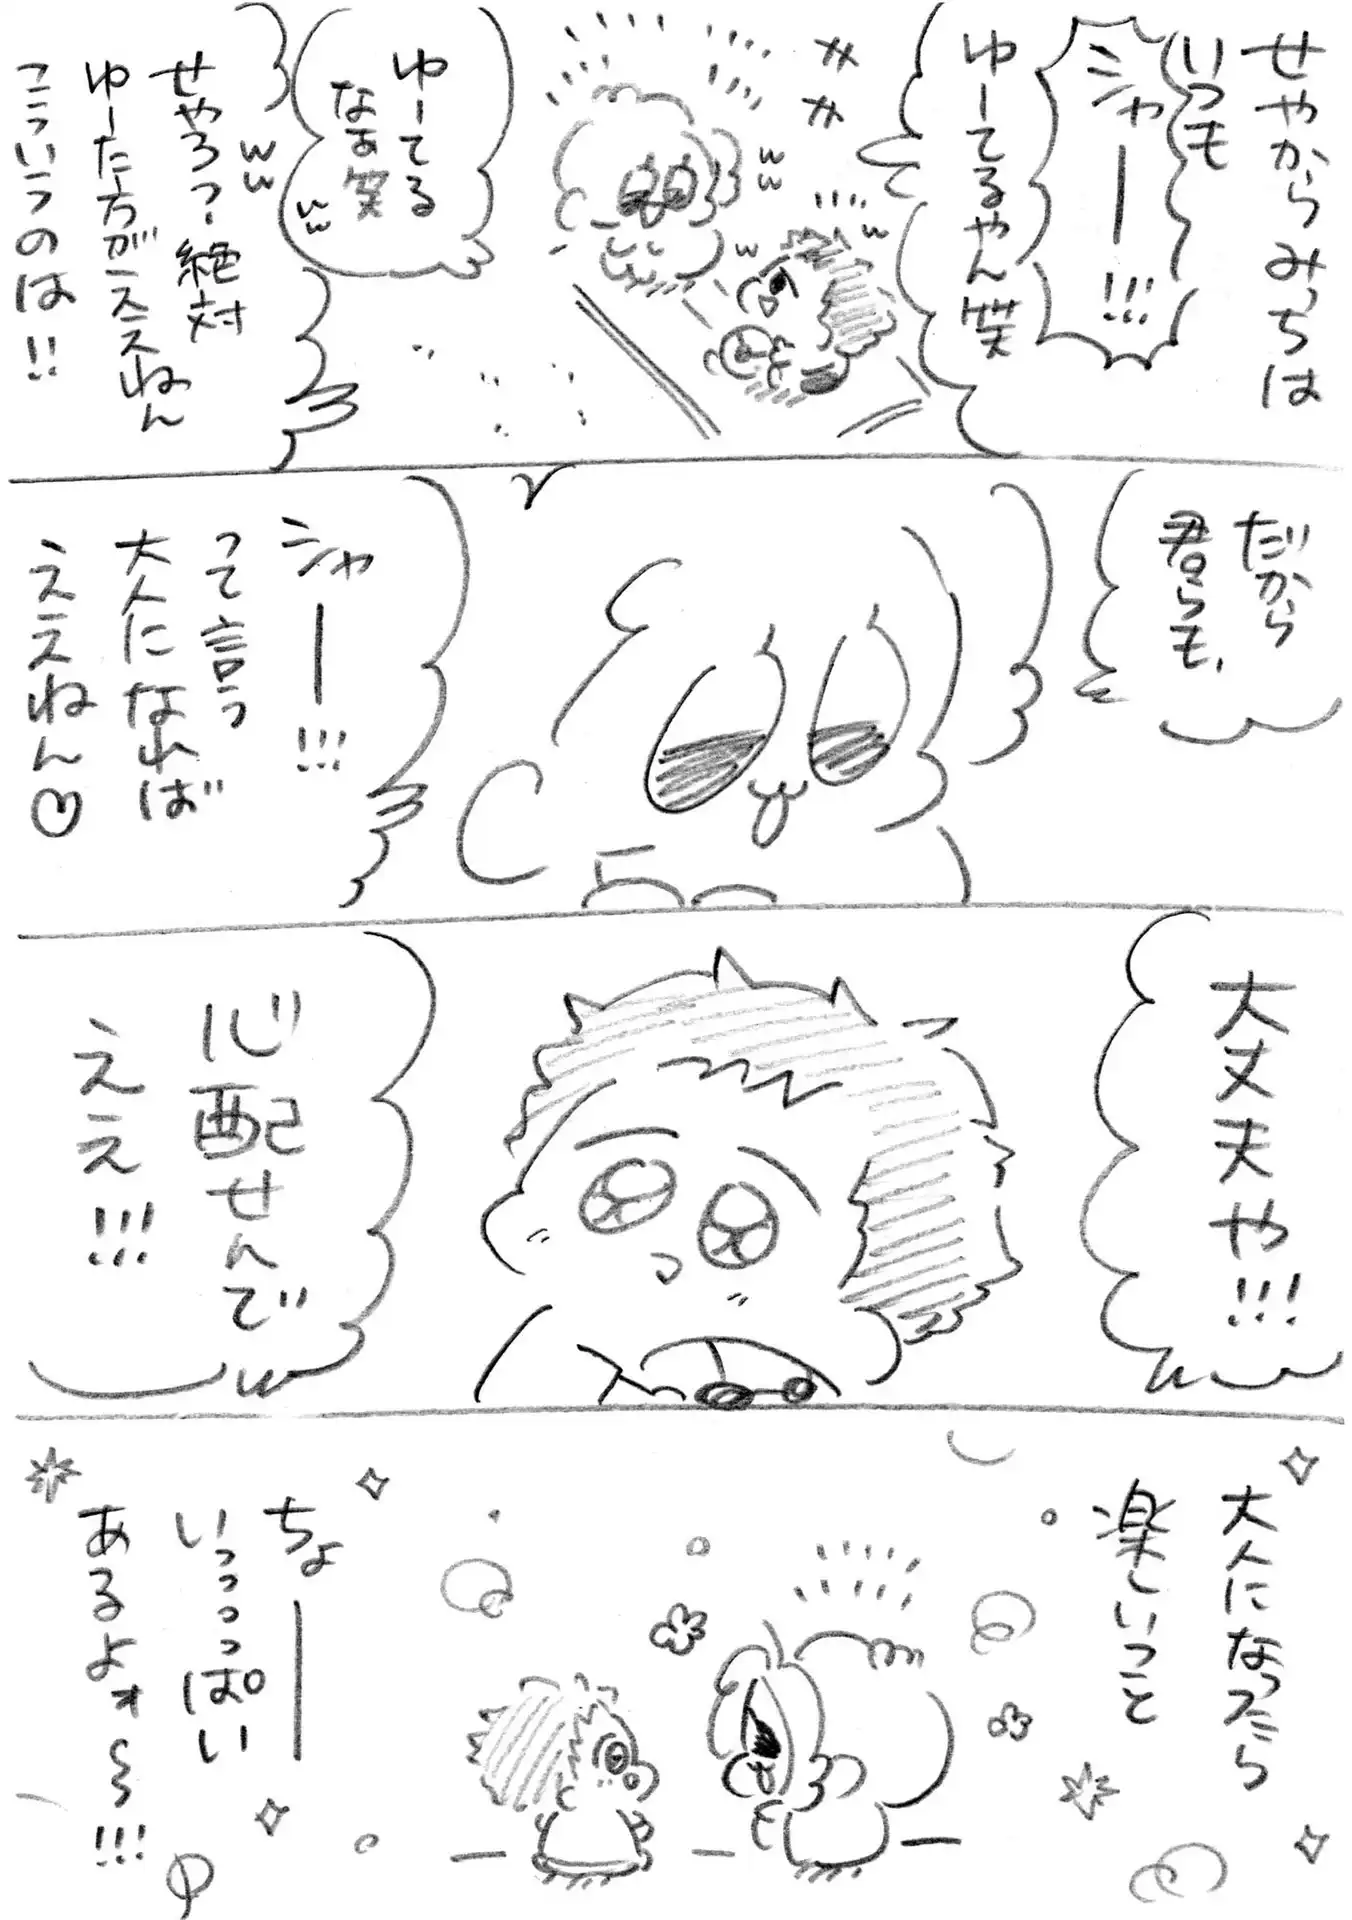 せやからみっちは
いつも
シャー!!!
ゆーてるやん笑
ゆーてる
なあ笑
ww
ww
せやろ?絶対
ゆーた方がええねん
こういうのは!!
だから
君らも、
シャー!!!
って言う
大人になれば
ええねん♡
大丈夫や!!!
心配せんで
ええ!!!
大人になったら
楽しいこと
ちょー
いっっっぱい
あるよォ〜〜!!!